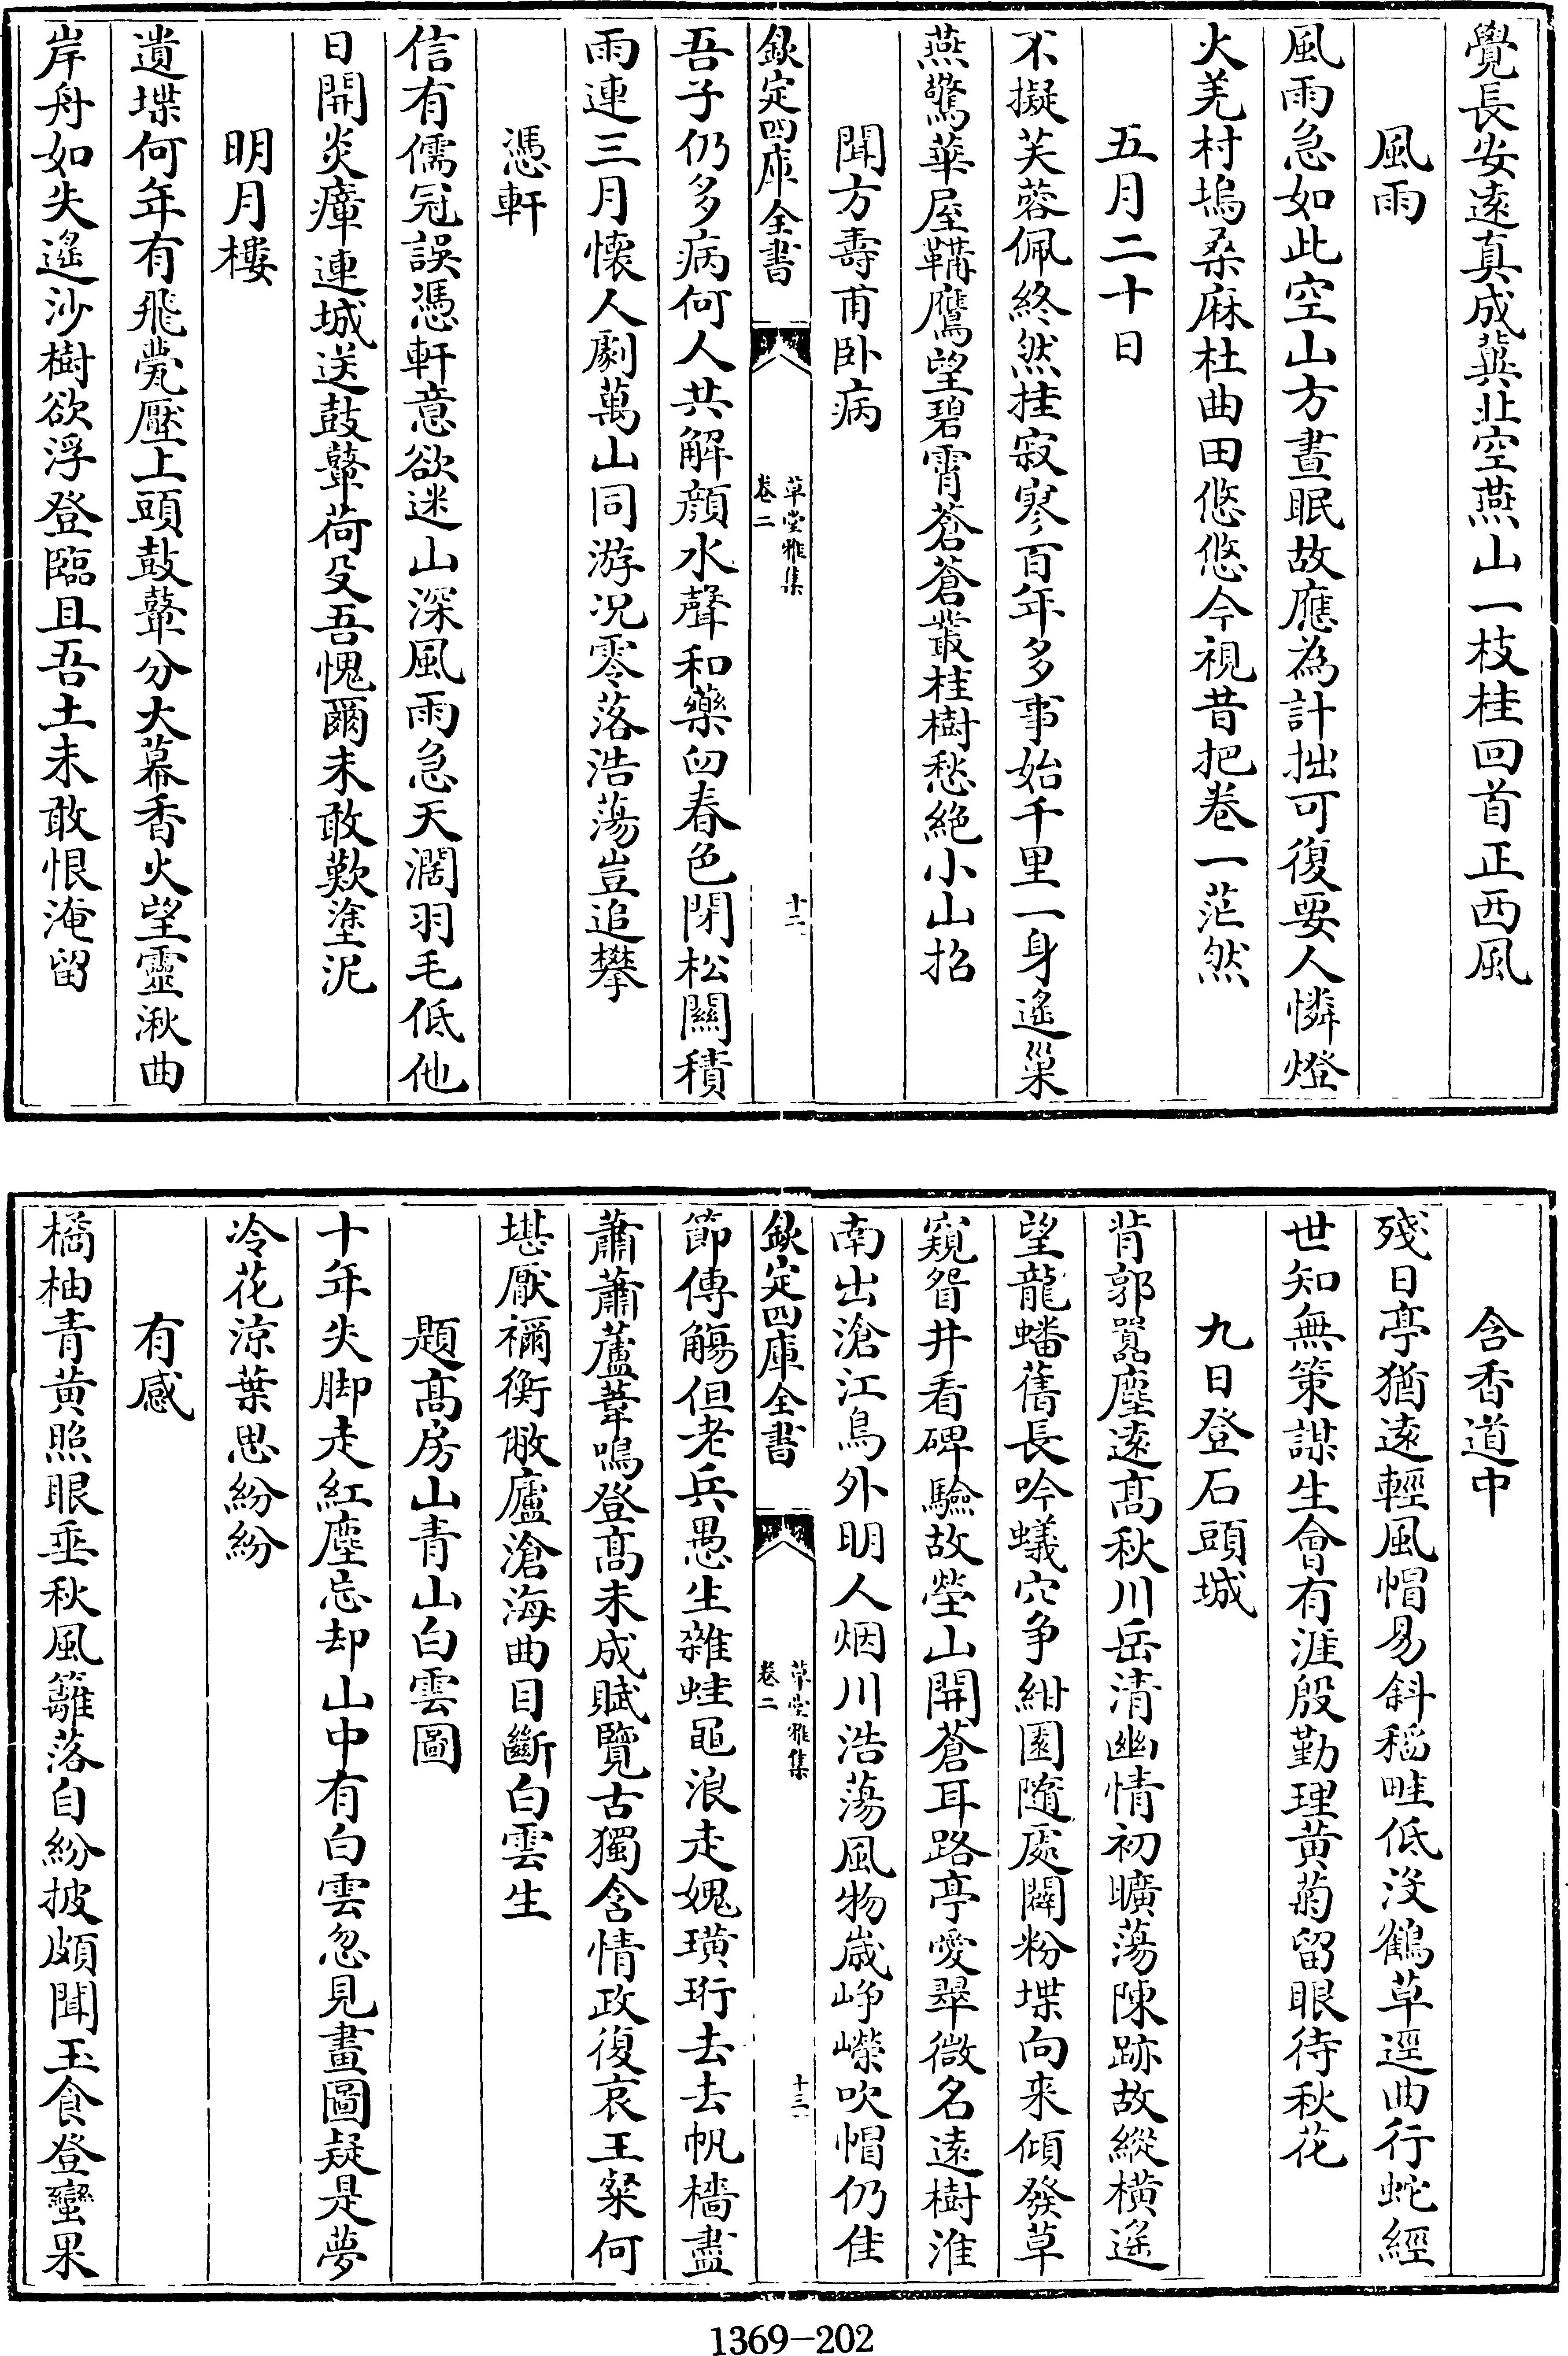 覺長安遠真成冀北空燕山一枝桂回首正西風
風雨
風雨急如此空山方晝眠故應為計拙可復要人憐燈
火羌村塢桑麻杜曲田悠悠今視昔把卷一茫然
五月二十日
不擬芙蓉佩終然挂寂寥百年多事始千里一身遥巢
燕驚華屋鞲鷹望碧霄蒼蒼叢桂樹愁絶小山招
聞方壽甫卧病
欽定四庫全書
草堂雅集
卷二
十二
吾子仍多病何人共解顔水聲和藥臼春色閉松關積
雨連三月懐人劇萬山同游况零落浩蕩豈追攀
憑軒
信有儒冠誤憑軒意欲迷山深風雨急天濶羽毛低他
日開炎瘴連城送鼓鼙荷殳吾愧爾未敢歎塗泥
明月樓
遺堞何年有飛甍壓上頭鼓鼙分大幕香火望靈湫曲
岸舟如失遥沙樹欲浮登臨且吾土未敢恨淹留
含香道中
殘日亭猶遠輕風帽易斜稻畦低沒鶴草逕曲行蛇經
世知無策謀生會有涯殷勤理黄菊留眼待秋花
九日登石頭城
背郭囂塵遠髙秋川岳清幽情初曠蕩陳跡故縱横遥
望龍蟠舊長吟蟻穴争紺園隨處闢粉堞向来傾發草
窺眢井看碑驗故塋山開蒼耳路亭愛翠微名遠樹淮
南出滄江鳥外明人烟川浩蕩風物嵗峥嶸吹帽仍佳
欽定四庫全書
草堂雅集
卷二
十三
節傳觴但老兵愚生雜蛙黽浪走媿璜珩去去帆檣盡
蕭蕭蘆葦鳴登髙未成賦覽古獨含情政復哀王粲何
堪厭禰衡敝廬滄海曲目斷白雲生
題髙房山青山白雲圖
十年失脚走紅塵忘却山中有白雲忽見畫圖疑是夢
冷花涼葉思紛紛
有感
橘柚青黄照眼垂秋風籬落自紛披頗聞玉食登蠻果
1369-202